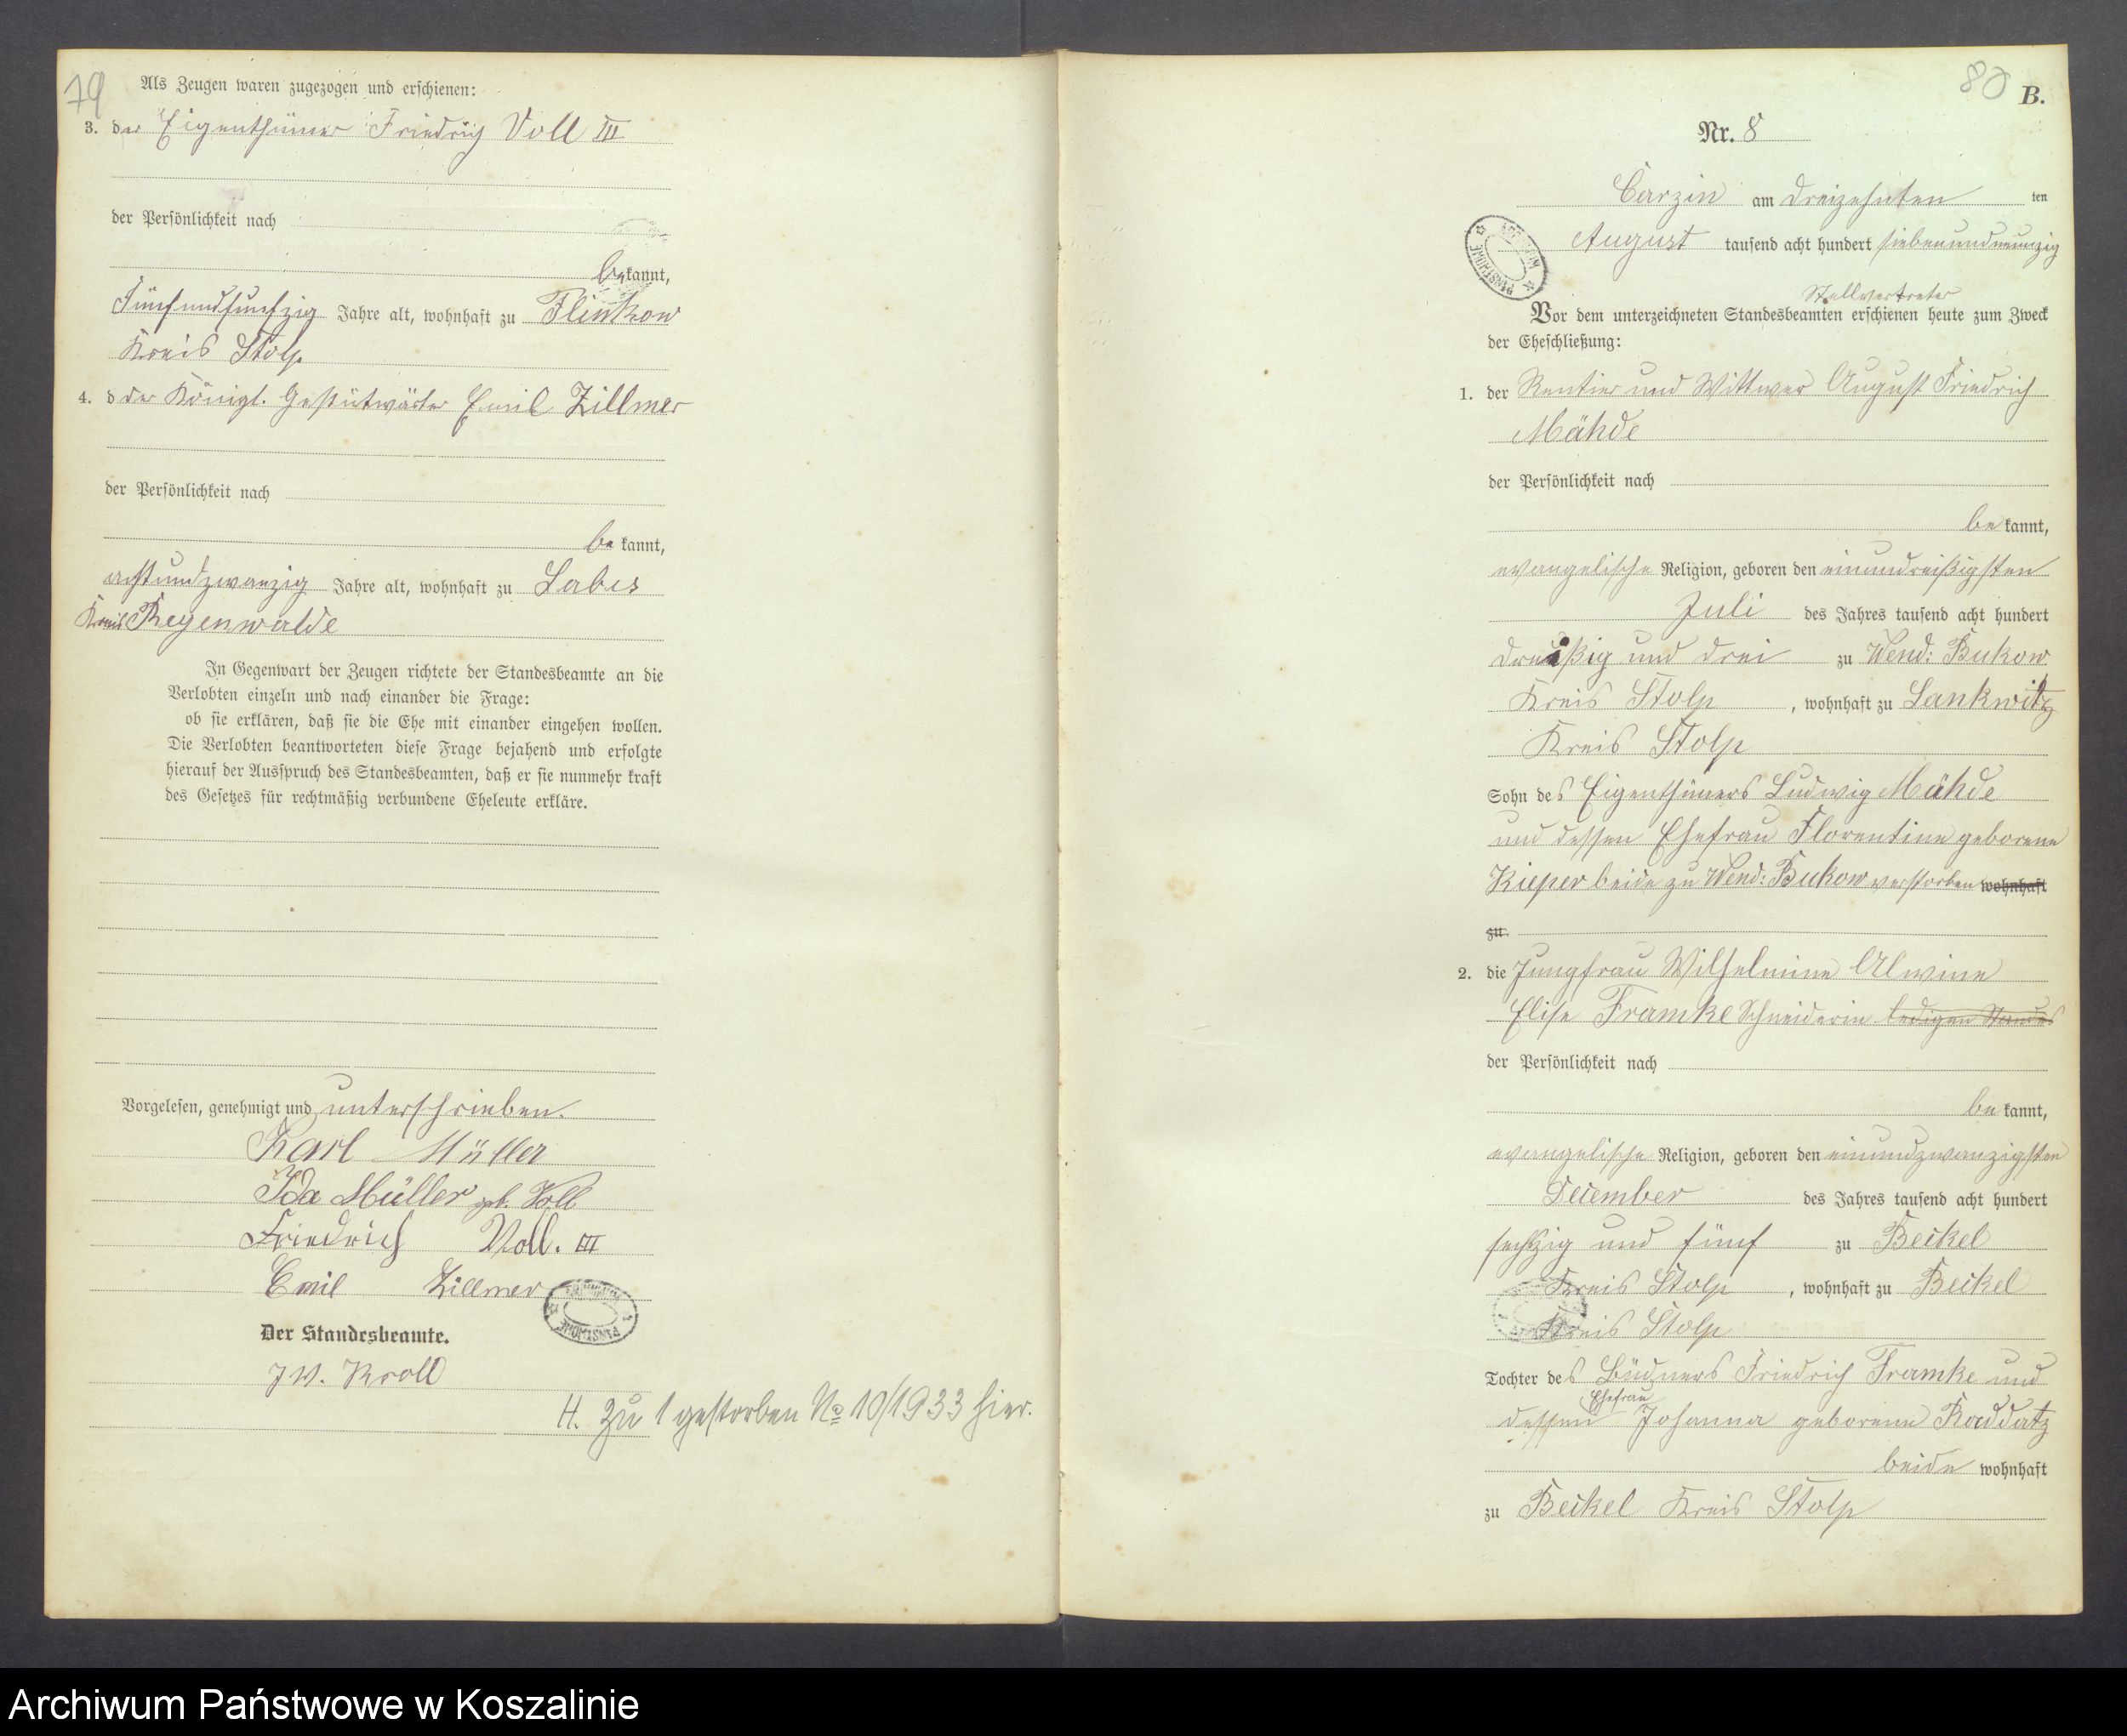 79
Als Zeugen waren zugezogen und erschienen:
3. der Eigenthümer Friedrich Voll III
der Persönlichkeit nach
bekannt,
Fünfundfunfzig Jahre alt, wohnhaft zu Flinkow
Kreis Stolp
4. d der Königl. Gestütwärter Emil Zillmer
der Persönlichkeit nach
be kannt,
achtundzwanzig Jahre alt, wohnhaft zu Labes
Kreis Regenwalde
In Gegenwart der Zeugen richtete der Standesbeamte an die
Verlobten einzeln und nach einander die Frage:
ob sie erklären, daß sie die Ehe mit einander eingehen wollen.
Die Verlobten beantworteten diese Frage bejahend und erfolgte
hierauf der Ausspruch des Standesbeamten, daß er sie nunmehr kraft
des Gesetzes für rechtmäßig verbundene Eheleute erkläre.
Vorgelesen, genehmigt und unterschrieben.
Karl Müller
Ida Müller geb. Voll
Friedrich Voll. III
Emil Zillmer
Der Standesbeamte.
J. V. Kroll
H. Zu 1 gestorben No 10/1933 hier.
80
B.
Nr. 8
Carzin am dreizehnten ten
August tausend acht hundert siebenundneunzig
Stellvertreter
Vor dem unterzeichneten Standesbeamten erschienen heute zum Zweck
der Eheschließung:
1. der Rentier und Wittwer August Friedrich
Mähde
der Persönlichkeit nach
be kannt,
evangelische Religion, geboren den einundreißigsten
Juli des Jahres tausend acht hundert
dreißig und drei zu Wend: Bukow
Kreis Stolp, wohnhaft zu Lankwitz
Kreis Stolp
Sohn des Eigenthümers Ludwig Mähde
und dessen Ehefrau Florentine geborene
Kieper beide zu Wend: Bukow verstorben wohnhaft
zu
2. die Jungfrau Wilhelmine Alwine
Elise Framke Schneiderin ledigen Standes
der Persönlichkeit nach
be kannt,
evangelische Religion, geboren den einundzwanzigsten
December des Jahres tausend acht hundert
sechzig und fünf zu Beckel
Kreis Stolp, wohnhaft zu Beckel
Kreis Stolp
Tochter des Büdners Friedrich Framke und
Ehefrau
dessen Johanna geborene Raddatz
beide wohnhaft
zu Beckel Kreis Stolp
Archiwum Państwowe w Koszalinie